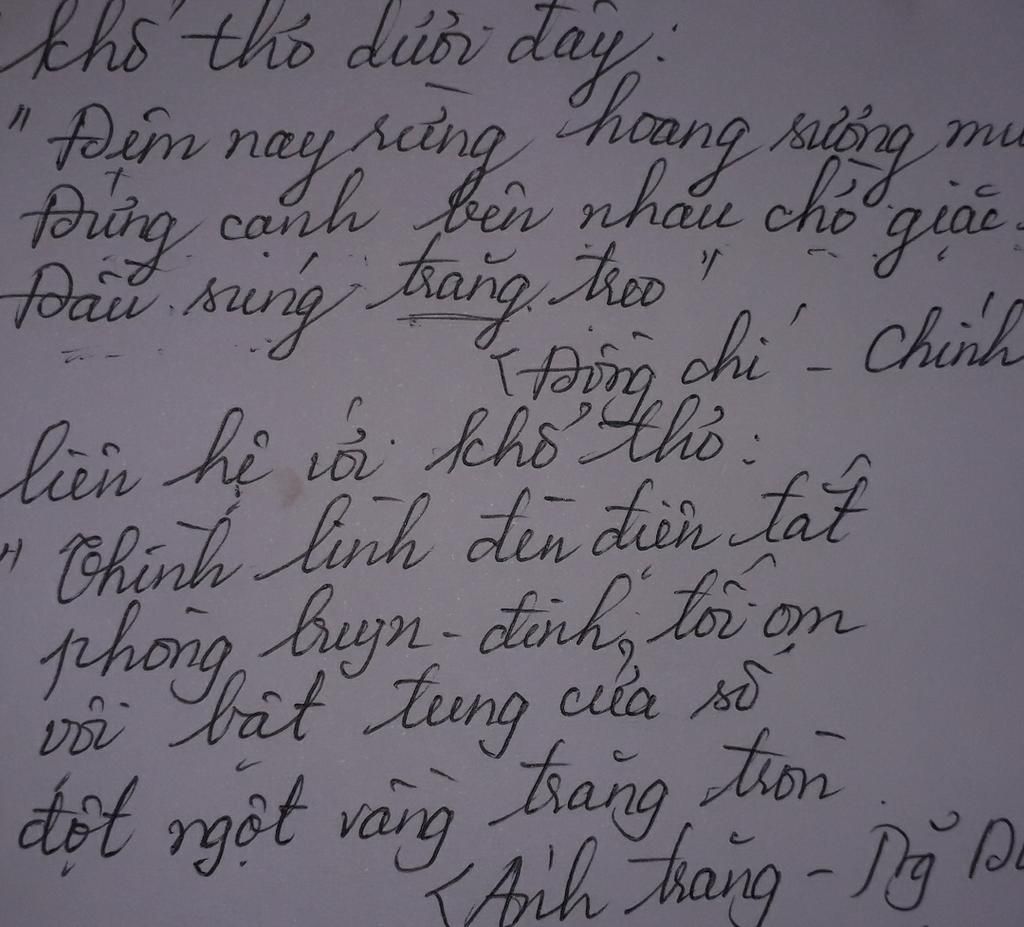 khổ thơ dưới đây:
" Đêm nay rừng hoang sương mu
Đứng cạnh bên nhau chờ giặc
Đầu súng trăng treo "
(Đồng chí - Chính
liên hệ với khổ thơ:
" Thình lình đèn điện tắt
phòng buyn-đinh tối om
vội bật tung cửa sổ
đột ngột vầng trăng tròn
(Ánh trăng - Ng Du